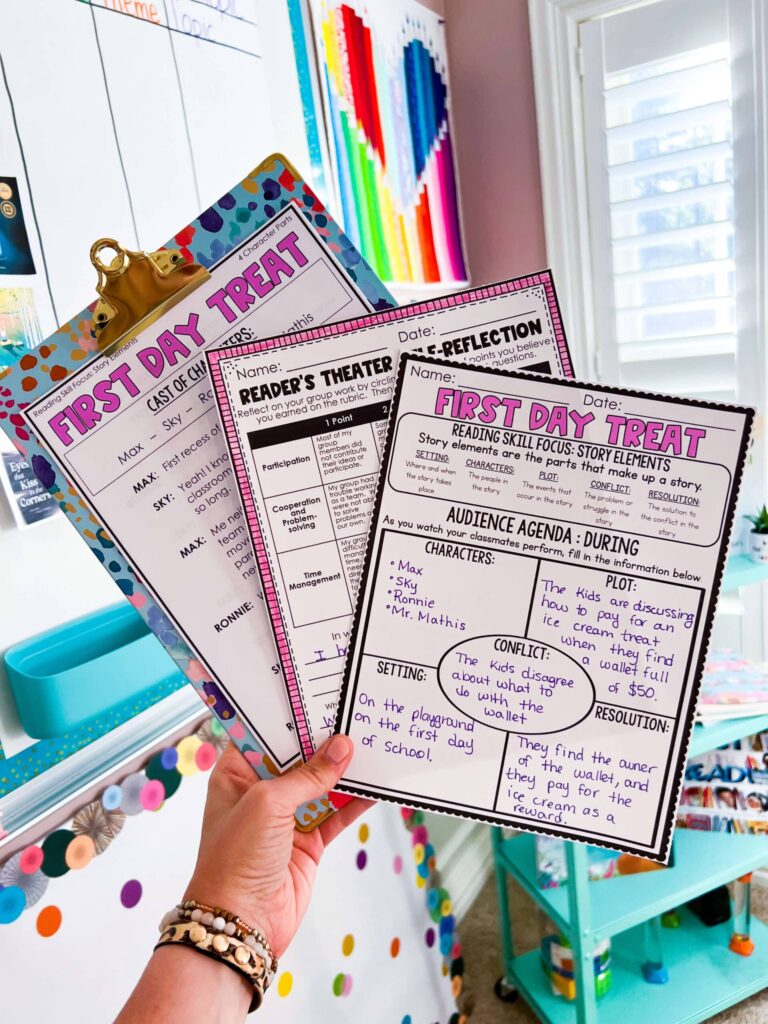 Theme
Topic
4 Character Parts
Reading Skill Focus: Story Elements
FIRST DAY TREAT
CAST OF CHARACTERS:
Max - Sky - Mathis
MAX: First recess of
SKY: Yeah! I kno
classroom
so long.
MAX: Me nei
team
mov
pare
RONNIE:
SK
Name: Date:
READER'S THEATER SELF-REFLECTION
Reflect on your group work by circling points you believe
you earned on the rubric. Then questions.
1 Point 2
Participation
Most of my
group
members did
not contribute
their ideas or
participate.
Cooperation
and
Problem-
solving
My group
had trouble
working
as a team.
We were
not able to
solve
problems on
our own.
Time
Management
In w
I h
Name: Date:
FIRST DAY TREAT
READING SKILL FOCUS: STORY ELEMENTS
Story elements are the parts that make up a story.
SETTING:
Where and when
the story takes
place
CHARACTERS:
The people in
the story
PLOT:
The events that
occur in the story
CONFLICT:
The problem or
struggle in the
story
RESOLUTION:
The solution to
the conflict in the
story
AUDIENCE AGENDA: DURING
As you watch your classmates perform, fill in the information below.
CHARACTERS:
• Max
• Sky
• Ronnie
• Mr. Mathis
PLOT:
The kids are discussing
how to pay for an
ice cream treat
when they find
a wallet full
of $50.
CONFLICT:
The kids disagree
about what to
do with the
wallet
SETTING:
On the playground
on the first day
of school.
RESOLUTION:
They find the owner
of the wallet, and
they pay for the
ice cream as a
reward.
Eyes
that
Kiss in
the
Corners
READ